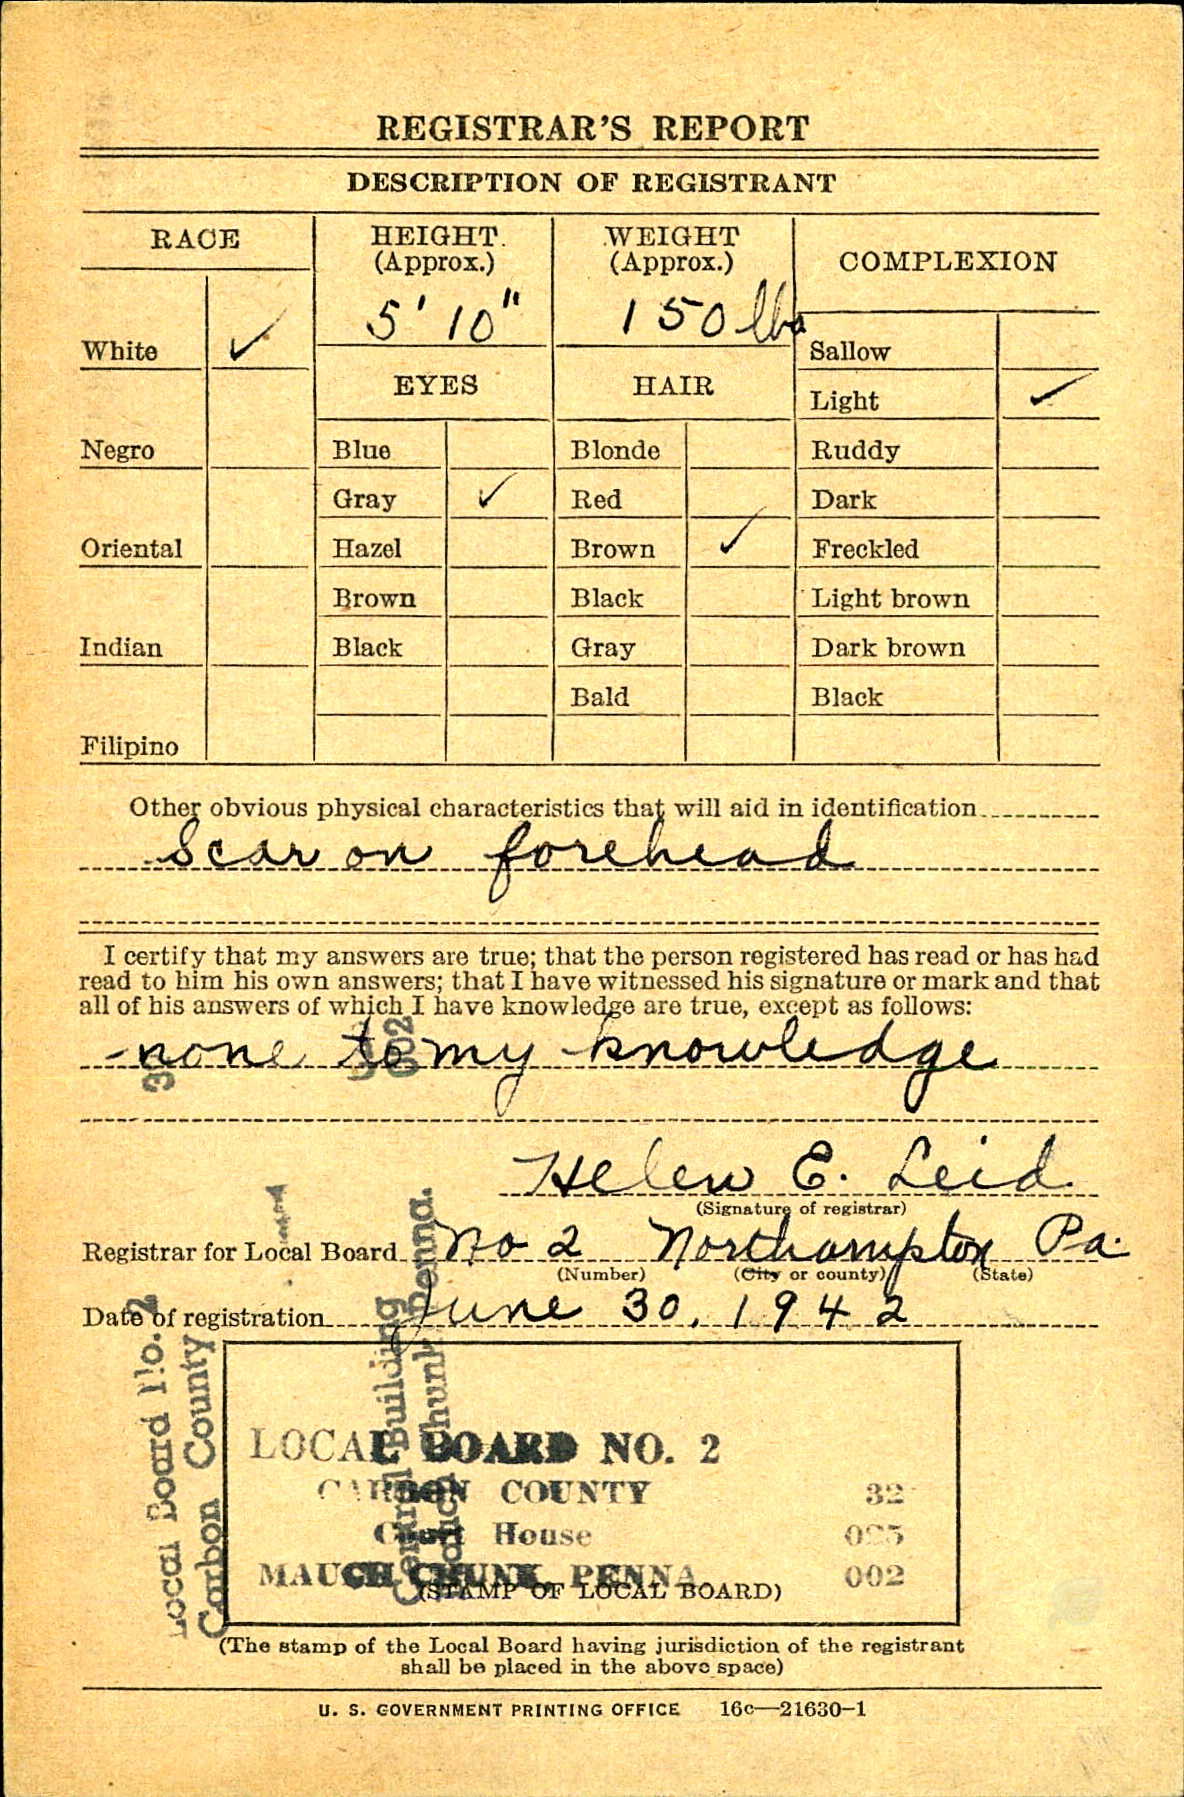 REGISTRAR'S REPORT
DESCRIPTION OF REGISTRANT
RACE
HEIGHT
(Approx.)
WEIGHT
(Approx.)
COMPLEXION
5' 10"
150 lbs
White ✓
Sallow
EYES
HAIR
Light ✓
Negro
Blue
Blonde
Ruddy
Gray ✓
Red
Dark
Oriental
Hazel
Brown ✓
Freckled
Brown
Black
Light brown
Indian
Black
Gray
Dark brown
Bald
Black
Filipino
Other obvious physical characteristics that will aid in identification
Scar on forehead
I certify that my answers are true; that the person registered has read or has had
read to him his own answers; that I have witnessed his signature or mark and that
all of his answers of which I have knowledge are true, except as follows:
none to my knowledge
Helen E. Leid
(Signature of registrar)
Registrar for Local Board No 2 Northampton Pa.
(Number) (City or county) (State)
Date of registration June 30, 1942
Local Board No. 2
Carbon County
Central Building
Mauch Chunk, Penna.
3
002
LOCAL BOARD NO. 2
CARBON COUNTY 32
Court House 025
MAUCH CHUNK, PENNA 002
(STAMP OF LOCAL BOARD)
(The stamp of the Local Board having jurisdiction of the registrant
shall be placed in the above space)
U. S. GOVERNMENT PRINTING OFFICE 16c—21630-1